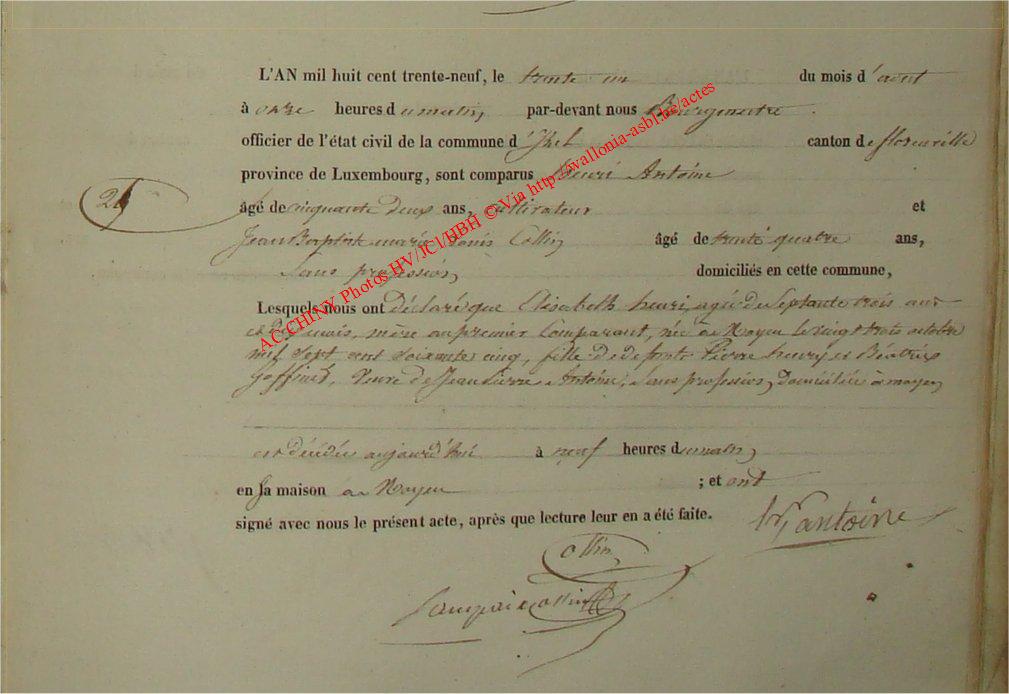 L'AN mil huit cent trente-neuf, le trente un du mois d'aout
à onze heures du matin, par-devant nous Bourgmestre
officier de l'état civil de la commune d'Izel canton de florenville
province de Luxembourg, sont comparus henri Antoine
âgé de cinquante deux ans, cultivateur et
24
Jean Baptiste marie Louis Collin, âgé de trente quatre ans,
Sans profession, domiciliés en cette commune,
Lesquels nous ont déclaré que Elisabeth henri, agée de Septante trois ans
et dix mois, mère au premier Comparant, née à Moyen le vingt trois octobre
mil Sept cent Soixante cinq, fille de defunts Pierre henry et Béatrix
Goffinet, Veuve de Jean Pierre Antoine, Sans profession, domiciliée à moyen,
est décédée aujourd'hui à neuf heures du matin,
en sa maison à Moyen ; et ont
signé avec nous le présent acte, après que lecture leur en a été faite.
antoine
Collin
ACCHINY Photos HV/JCl/HBH © Via http://wallonia-asbl.be/actes